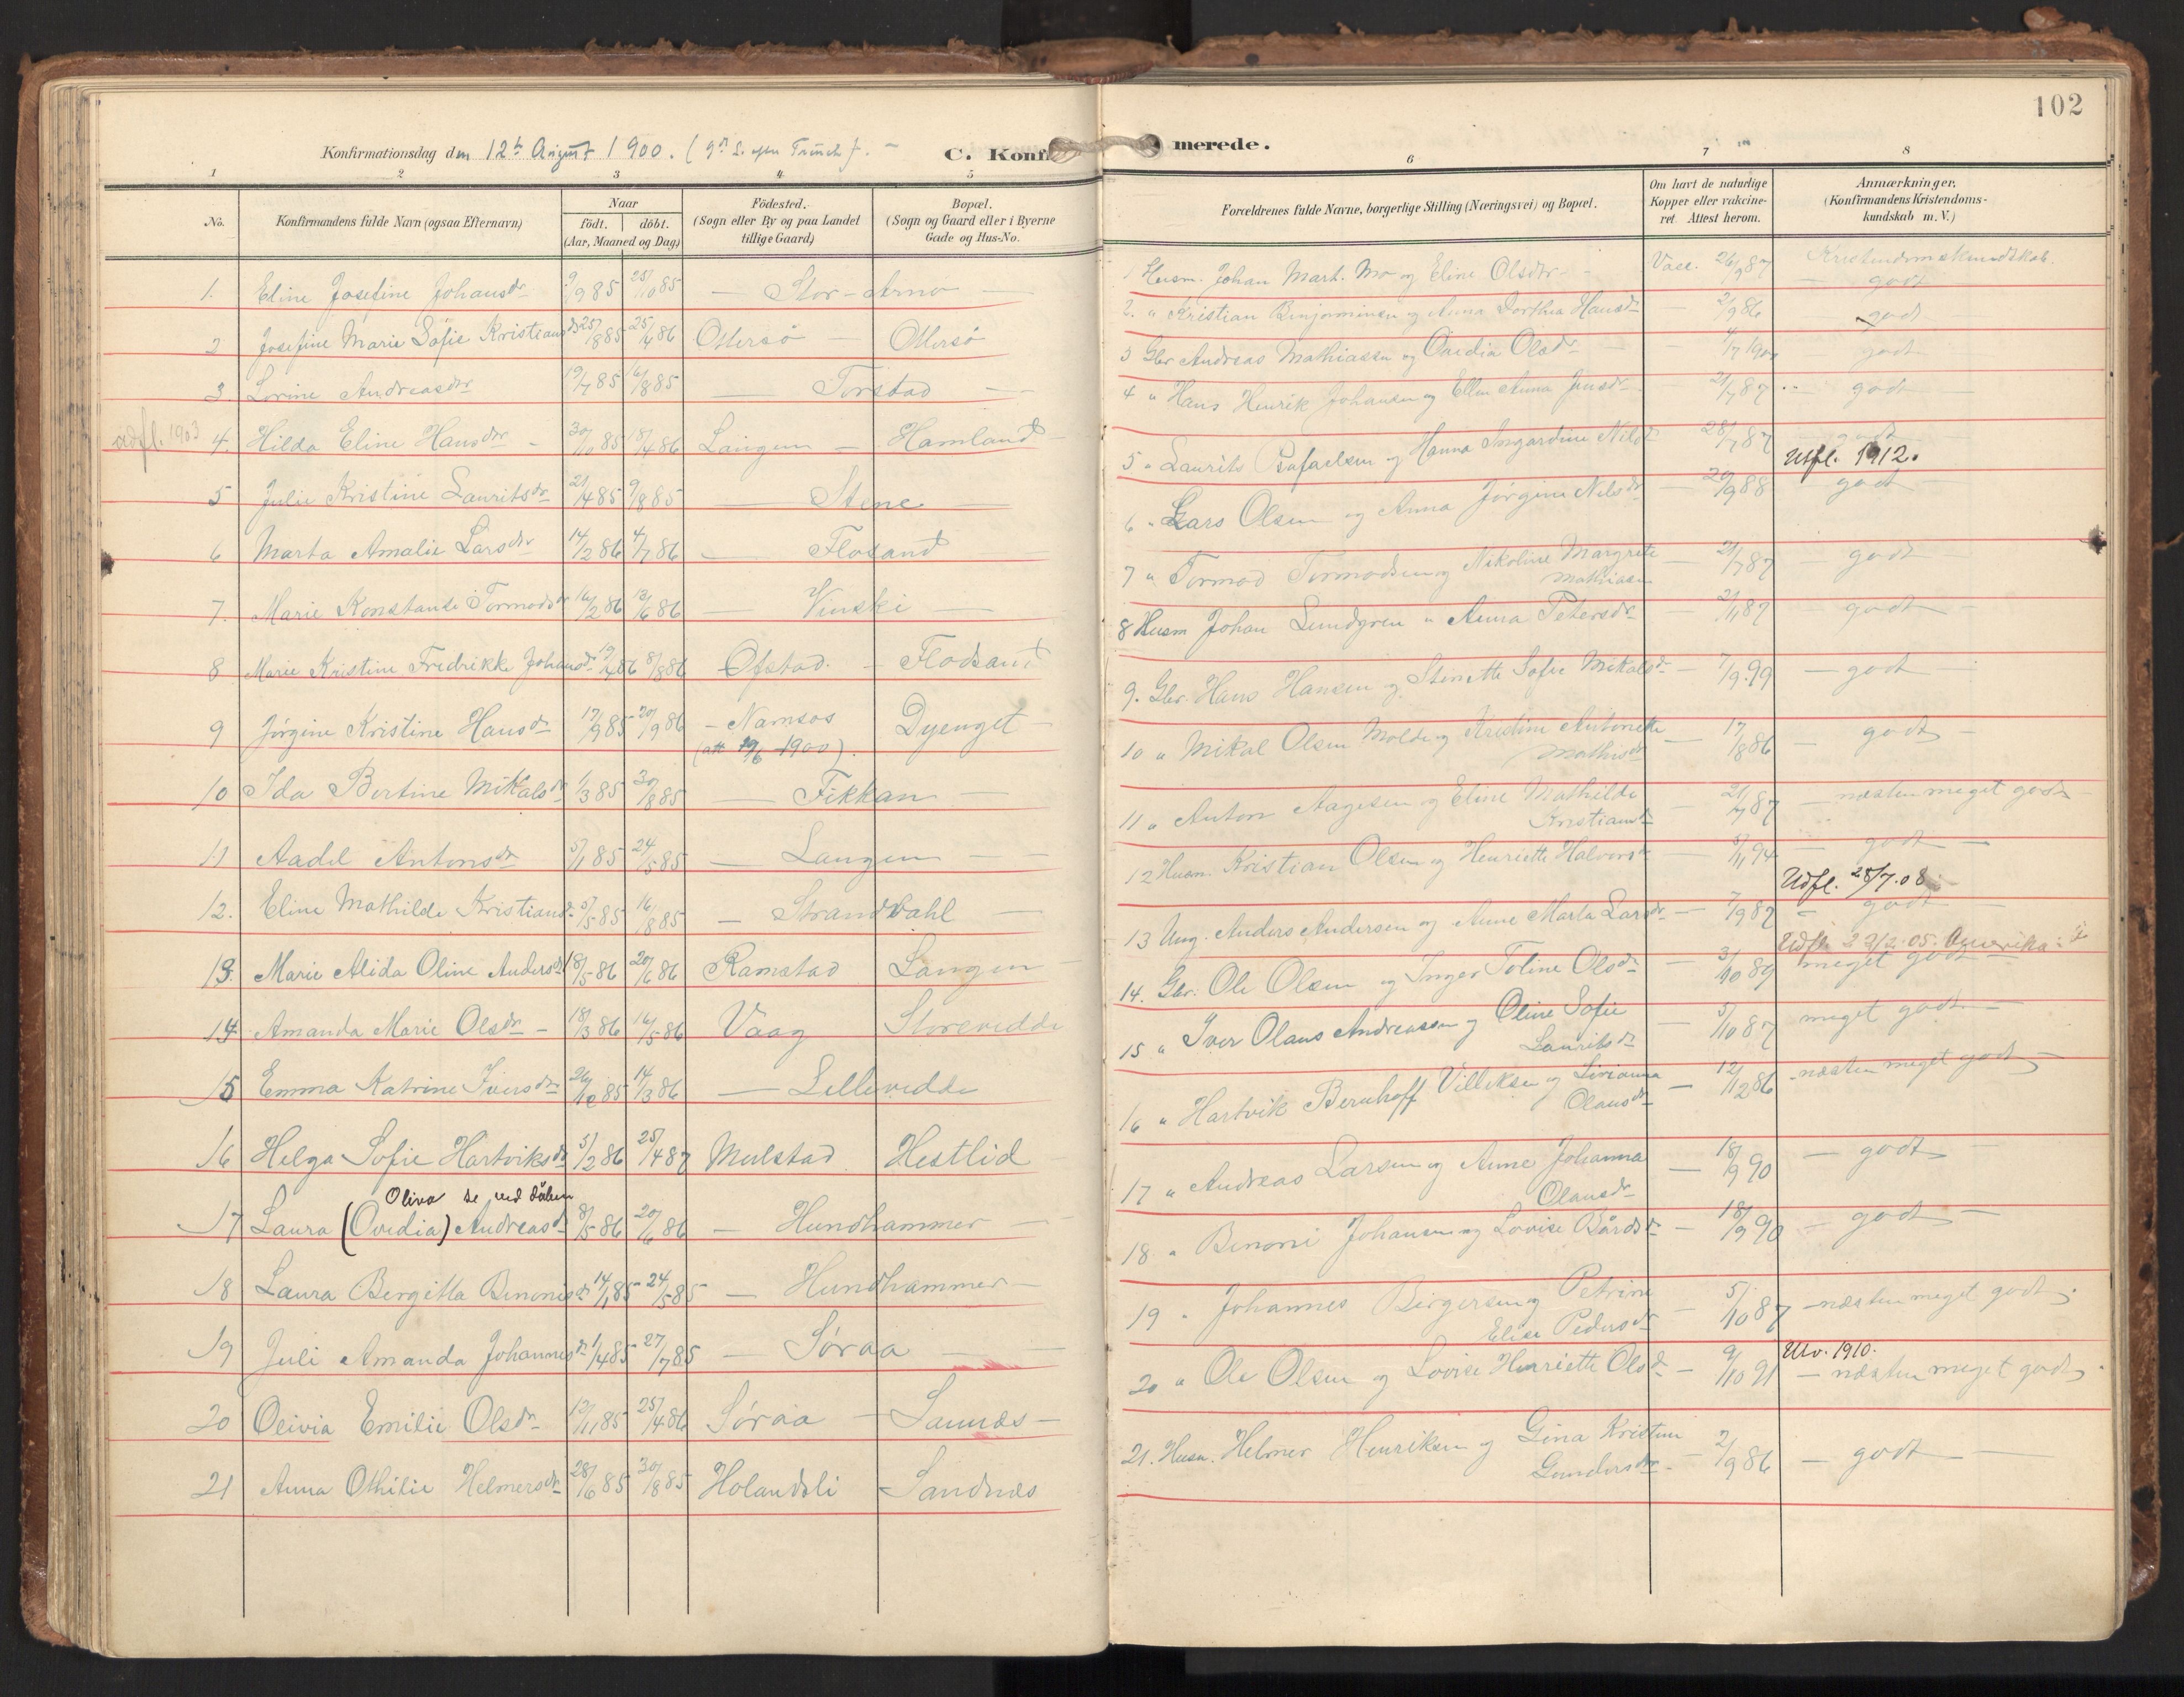 102
Konfirmationsdag den 12te August 1900. (9de S. efter Trinit.). –
C. Konfirmerede.
1 2 3 4 5 6 7 8
No.
Konfirmandens fulde Navn (ogsaa Efternavn)
Naar
født. døbt.
(Aar, Maaned og Dag)
Fødested.
(Sogn eller By og paa Landet
tillige Gaard)
Bopæl.
(Sogn og Gaard eller i Byerne
Gade og Hus-No.
Forældrenes fulde Navne, borgerlige Stilling (Næringsvei) og Bopæl.
Om havt de naturlige
Kopper eller vakcine-
ret. Attest herom.
Anmærkninger.
(Konfirmandens Kristendoms-
kundskab m. V.)
1. Eline Josefine Johansdr 9/9 85 25/10 85 — Stor-Arnø —
2 Josefine Marie Sofie Kristiansdr 25/8 85 25/4 86 Ottersø — Ottersø
3. Lorine Andreasdr 19/7 85 16/8 85 — Torstad —
udfl. 1903 4. Hilda Eline Hansdr – 30/10 85 18/4 86 Langen — Hamland
5 Julie Kristine Lauritsdr 21/4 85 9/8 85 — Stene —
6 Marta Amalie Larsdr 14/2 86 4/7 86 — Flosand
7. Marie Konstanse Tormodsdr 16/2 86 13/6 86 — Vinski —
8 Marie Kristine Fredrikke Johansdr 19/4 86 8/8 86 Ofstad. – Flosand
9 Jørgine Kristine Hansdr 17/9 85 20/9 86 – Namsos Dyenget
(att 19/6 1900).
10 Ida Bertine Mikalsdr 1/3 85 30/8 85 — Fikkan —
11 Aadel Antonsdr 5/1 85 24/5 85 — Langen —
12. Eline Mathilde Kristiansdr 5/5 85 16/8 85 — Strandvahl —
13. Marie Alida Oline Andersdr 18/5 86 20/6 86 Ramstad Langen
14. Amanda Marie Olsdr – 18/3 86 16/5 86 Vaag Storevedde
15 Emma Katrine Iversdr 26/12 85 14/3 86 — Lillevedde
16 Helga Sofie Hartviksdr 5/2 86 25/4 87 Mulstad Hestlid
Oliva se ved dåben
17 Laura (Ovedia) Andreasdr 8/5 86 20/6 86 — Hundhammer —
18 Laura Bergitta Benonisdr 14/1 85 24/5 85 — Hundhammer —
19 Juli Amanda Johannesdr 1/4 85 27/7 85 — Søraa —
20 Olivia Emilie Olsdr 12/11 85 25/4 86 Søraa — Sannes —
21 Anna Othilie Helmersdr 28/6 85 30/8 85 Holandsli Sandnes
1 Husm. Johan Mart. Mo og Eline Olsdtr – Vacc. 26/9 87 Kristendomskundskab.
— godt
2. " Kristian Benjaminsen og Anna Dorthea Hansdr — 2/9 86 godt
3 Gbr Andreas Mathiassen og Ovedia Olsdr — 4/7 1900 godt
4 " Hans Henrik Johansen og Ellen Anna Jensdr — 21/7 87 — godt —
5 " Laurits Rafaelsen og Hanna Ingardine Nilsdr 28/7 87 godt
Utfl. 1912.
6 " Lars Olsen og Anna Jørgine Nilsdr — 20/9 88 godt —
7 " Tormod Tormodsen og Nikoline Margrete
Mathiasen — 21/7 87 — godt —
8 Husm Johan Lundgren " Anna Petersdr — 21/1 87 — godt —
9. Gbr. Hans Hansen og Stinette Sofie Mikalsdr — 7/9. 99 — godt —
10 " Mikal Olsen Molde og Kristine Antonette
Mathisdr — 17/8 86 — godt —
11 " Anton Aagesen og Eline Mathilde
Kristiansdr — 21/7 87 — næsten meget godt —
12 Husm. Kristian Olsen og Henriette Halvorsdr — 5/11 94 — godt —
Udfl. 28/7. 08
13 Ung. Anders Andersen og Anne Marta Larsdr — 7/9 87 – godt —
Udfl. 22/2. 05. Amerika
14. Gbr. Ole Olsen og Inger Toline Olsdr — 3/10 89 meget godt —
15 " Iver Olaus Andreassen og Oline Sofie
Lauritsdr — 5/10 87 meget godt —
16 " Hartvik Bernhoff Villiksen og Livianna
Olausdr — 12/12 86 – næsten meget godt —
17 " Andreas Larsen og Anne Johanna
Olausdr — 18/9 90 — godt —
18. " Benoni Johansen og Lovise Bårdsdr — 18/9 90 — godt —
19 " Johannes Birgersen og Petrine
Elise Pedersdr — 5/10 87 – næsten meget godt.
Utv. 1910.
20 " Ole Olsen og Lovise Henriette Olsdr — 9/10 91 — næsten meget godt.
21. Husm. Helmer Henriksen og Gina Kristine
Gundersdtr – 2/9 86 — godt —